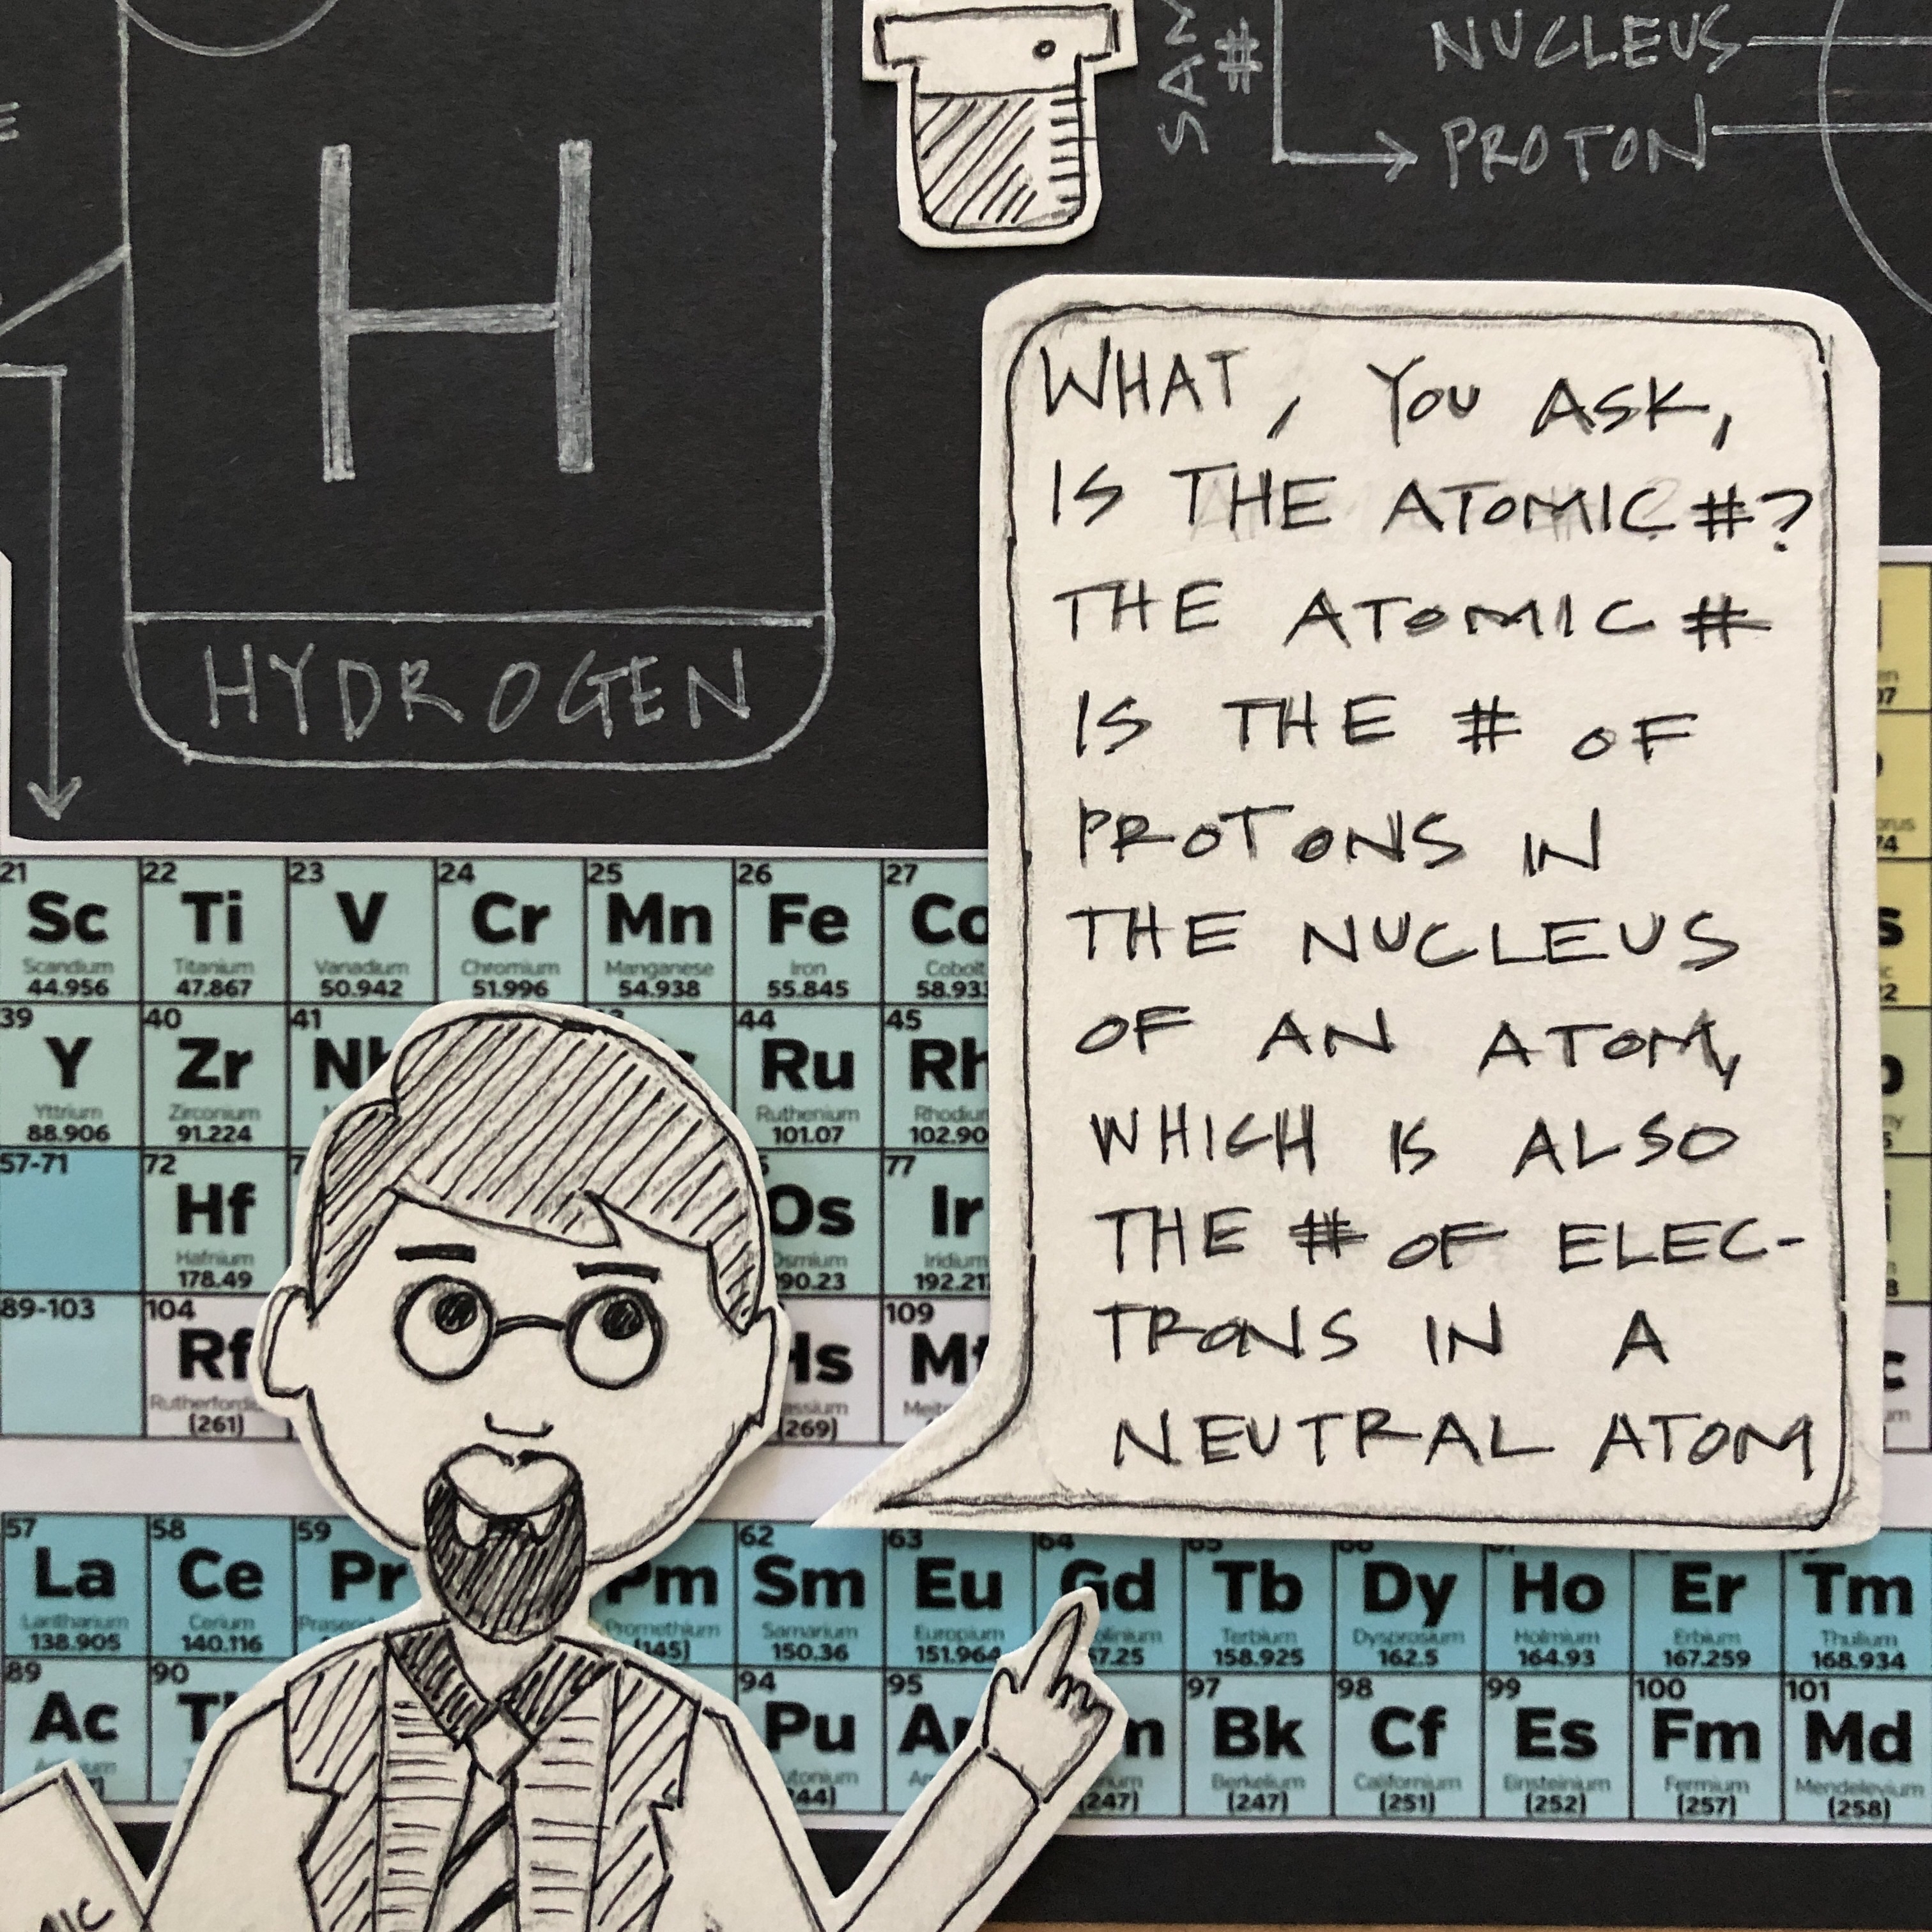 SAM
#
NUCLEUS
PROTON
H
HYDROGEN
WHAT, YOU ASK,
IS THE ATOMIC #?
THE ATOMIC #
IS THE # OF
PROTONS IN
THE NUCLEUS
OF AN ATOM,
WHICH IS ALSO
THE # OF ELEC-
TRONS IN A
NEUTRAL ATOM
21 22 23 24 25 26 27
Sc Ti V Cr Mn Fe Co
Scandium Titanium Vanadium Chromium Manganese Iron Cobolt
44.956 47.867 50.942 51.996 54.938 55.845 58.933
39 40 41 44 45
Y Zr Nb Ru Rh
Yttrium Zirconium Ruthenium Rhodium
88.906 91.224 101.07 102.90
57-71 72 77
Hf Os Ir
Hafnium Osmium Iridium
178.49 190.23 192.217
89-103 104 109
Rf Hs Mt
Rutherfordi
(261) (269)
57 58 59 62 63 64 65 66
La Ce Pr Pm Sm Eu Gd Tb Dy Ho Er Tm
Lanthanum Cerium Promethium Samarium Europium Terbium Dysprosium Holmium Erbium Thulium
138.905 140.116 (145) 150.36 151.964 57.25 158.925 162.5 164.93 167.259 168.934
89 90 94 95 97 98 99 100 101
Ac Th Pu Am Bk Cf Es Fm Md
Actinium Berkelium Californium Einsteinium Fermium Mendelevium
(247) (247) (251) (252) (257) (258)